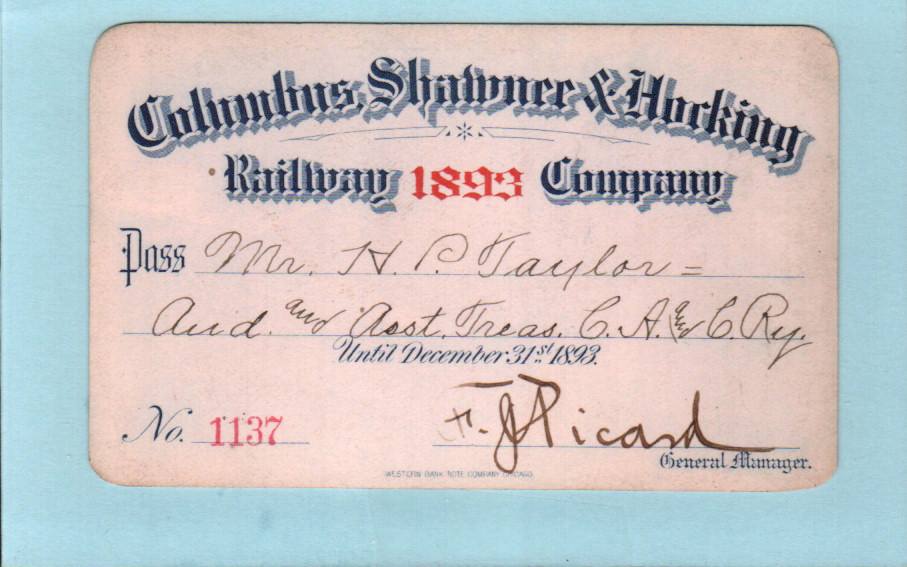 Columbus, Shawnee & Hocking
Railway 1893 Company
Pass Mr. H. P. Taylor =
Aud. and Asst. Treas. C. A. and C. Ry.
Until December 31st 1893.
No. 1137
F. J. Picard
General Manager.
WESTERN BANK NOTE COMPANY CHICAGO